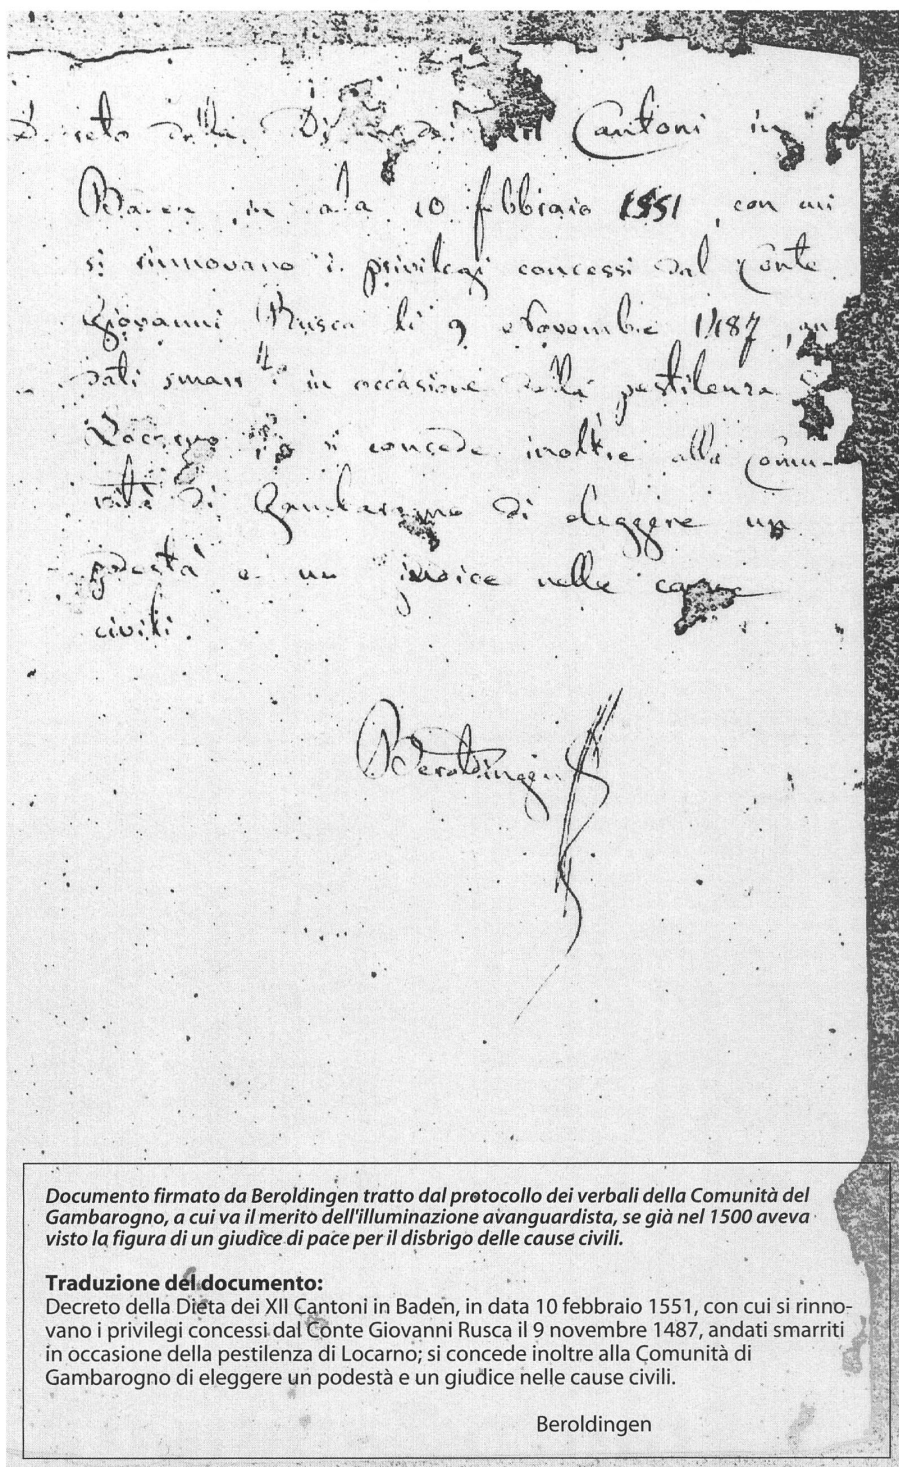 della Cantoni in
in 10 febbraio 1551, con cui
si rinnovano i privilegi concessi dal Conte
Giovanni Rusca li 9 Novembre 1487, an-
dati smarriti in occasione della pestilenza
Locarno si concede inoltre alla Comu-
nità di Gambarogno di eleggere un
podestà e un giudice nelle cause
civili.
Beroldingen
Documento firmato da Beroldingen tratto dal protocollo dei verbali della Comunità del
Gambarogno, a cui va il merito dell'illuminazione avanguardista, se già nel 1500 aveva
visto la figura di un giudice di pace per il disbrigo delle cause civili.
Traduzione del documento:
Decreto della Dieta dei XII Cantoni in Baden, in data 10 febbraio 1551, con cui si rinno-
vano i privilegi concessi dal Conte Giovanni Rusca il 9 novembre 1487, andati smarriti
in occasione della pestilenza di Locarno; si concede inoltre alla Comunità di
Gambarogno di eleggere un podestà e un giudice nelle cause civili.
Beroldingen